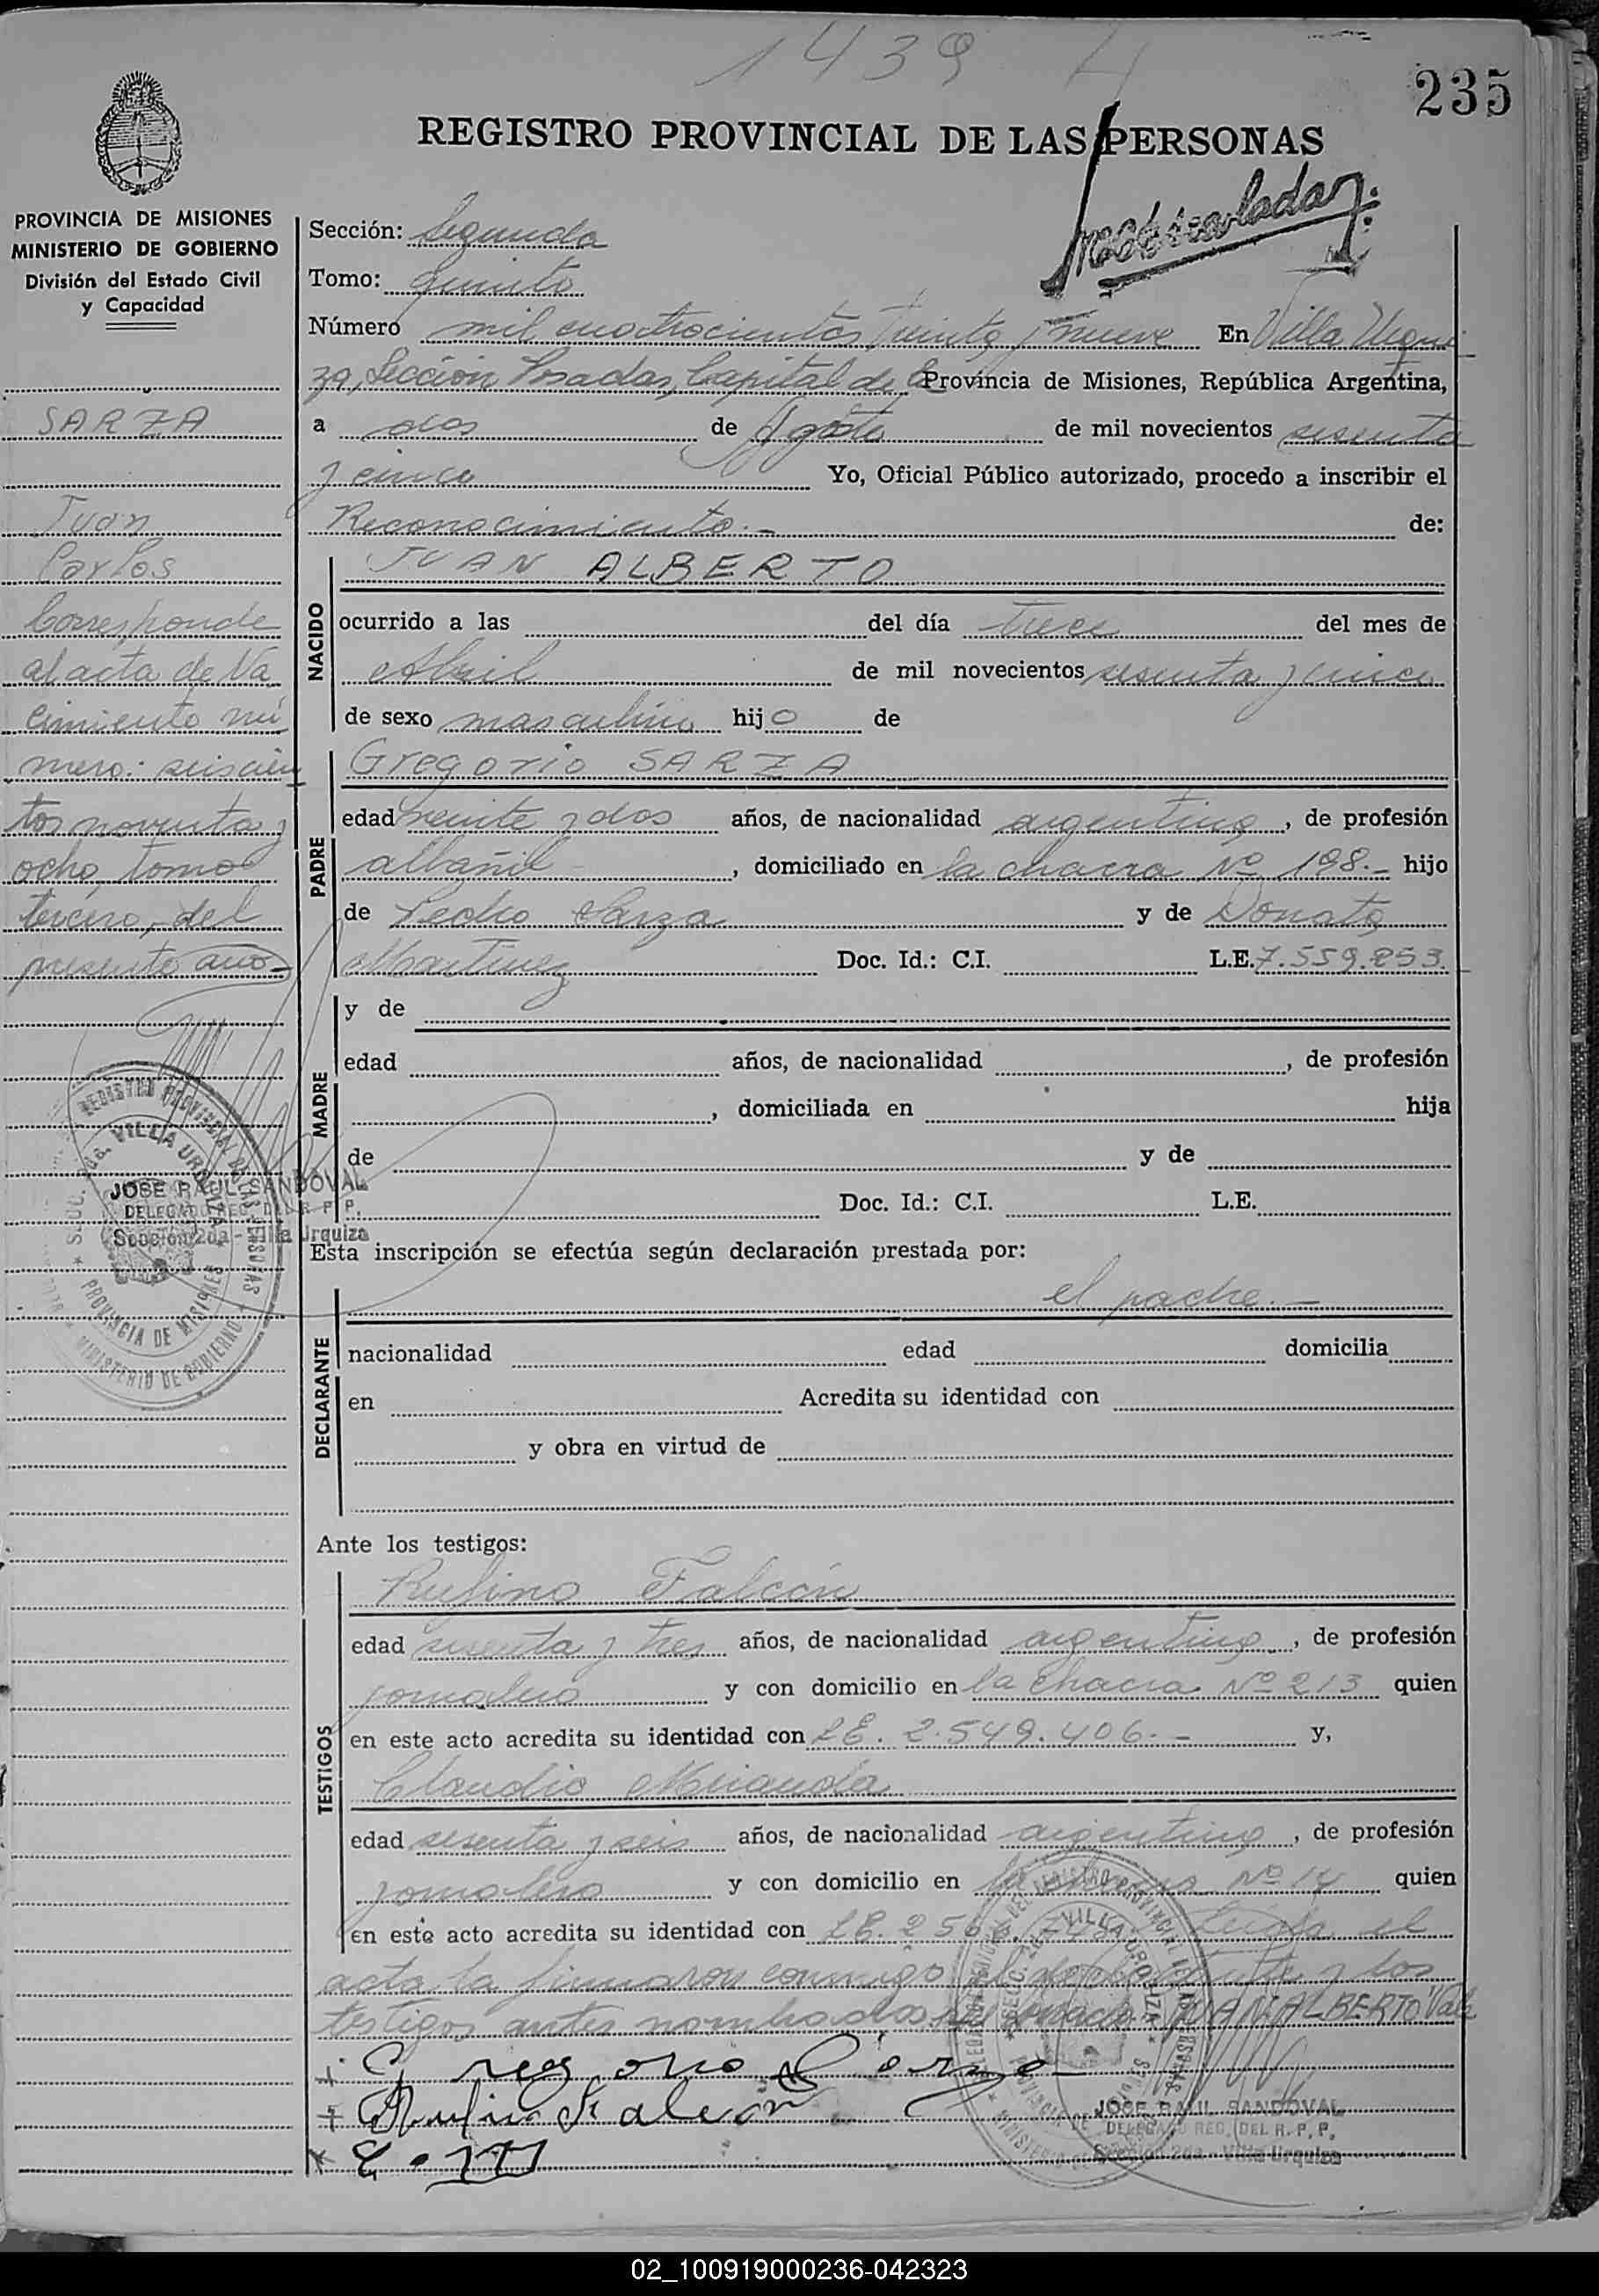 1439
235
REGISTRO PROVINCIAL DE LAS PERSONAS
PROVINCIA DE MISIONES
MINISTERIO DE GOBIERNO
División del Estado Civil
y Capacidad
SARZA
Juan
Carlos
Corresponde
al acta de Na
cimiento nú
mero: seiscien
tos noventa y
ocho, tomo
tercero, del
presente año
JOSE RAUL SANDOVAL
DELEGADO REG. DEL R. P. P.
Sección 2da - Villa Urquiza
Sección: Segunda
Tomo: quinto
Número mil cuatrocientos treinta y nueve En Villa Urqui
za, Sección Posadas, Capital de la Provincia de Misiones, República Argentina,
a dos de Agosto de mil novecientos sesenta
y cinco Yo, Oficial Público autorizado, procedo a inscribir el
Reconocimiento.- de:
NACIDO
JUAN ALBERTO
ocurrido a las del día trece del mes de
Abril de mil novecientos sesenta y cinco
de sexo masculino hijo de
PADRE
Gregorio SARZA
edad veinte y dos años, de nacionalidad argentina, de profesión
albañil, domiciliado en la chacra Nº 198.- hijo
de Pedro Sarza y de Donata
Martinez Doc. Id.: C.I. L.E. 7.559.253.
MADRE
y de
edad años, de nacionalidad , de profesión
, domiciliada en hija
de y de
Doc. Id.: C.I. L.E.
Esta inscripción se efectúa según declaración prestada por:
DECLARANTE
el padre.-
nacionalidad edad domicilia
en Acredita su identidad con
y obra en virtud de
Ante los testigos:
TESTIGOS
Rufino Falcón
edad sesenta y tres años, de nacionalidad argentina, de profesión
jornalero y con domicilio en la chacra Nº 213 quien
en este acto acredita su identidad con LE. 2.549.406.- y,
Claudio Miranda
edad sesenta y seis años, de nacionalidad argentina, de profesión
jornalero y con domicilio en Nº 14 quien
en este acto acredita su identidad con LE. Leída el
acta la firmaron conmigo el declarante y los
testigos antes nombrados JUAN ALBERTO Vale
Gregorio Sarza
Rufino Falcón
C. M
JOSE RAUL SANDOVAL
DELEGADO REG. DEL R. P. P.
Sección 2da - Villa Urquiza
02_100919000236-042323